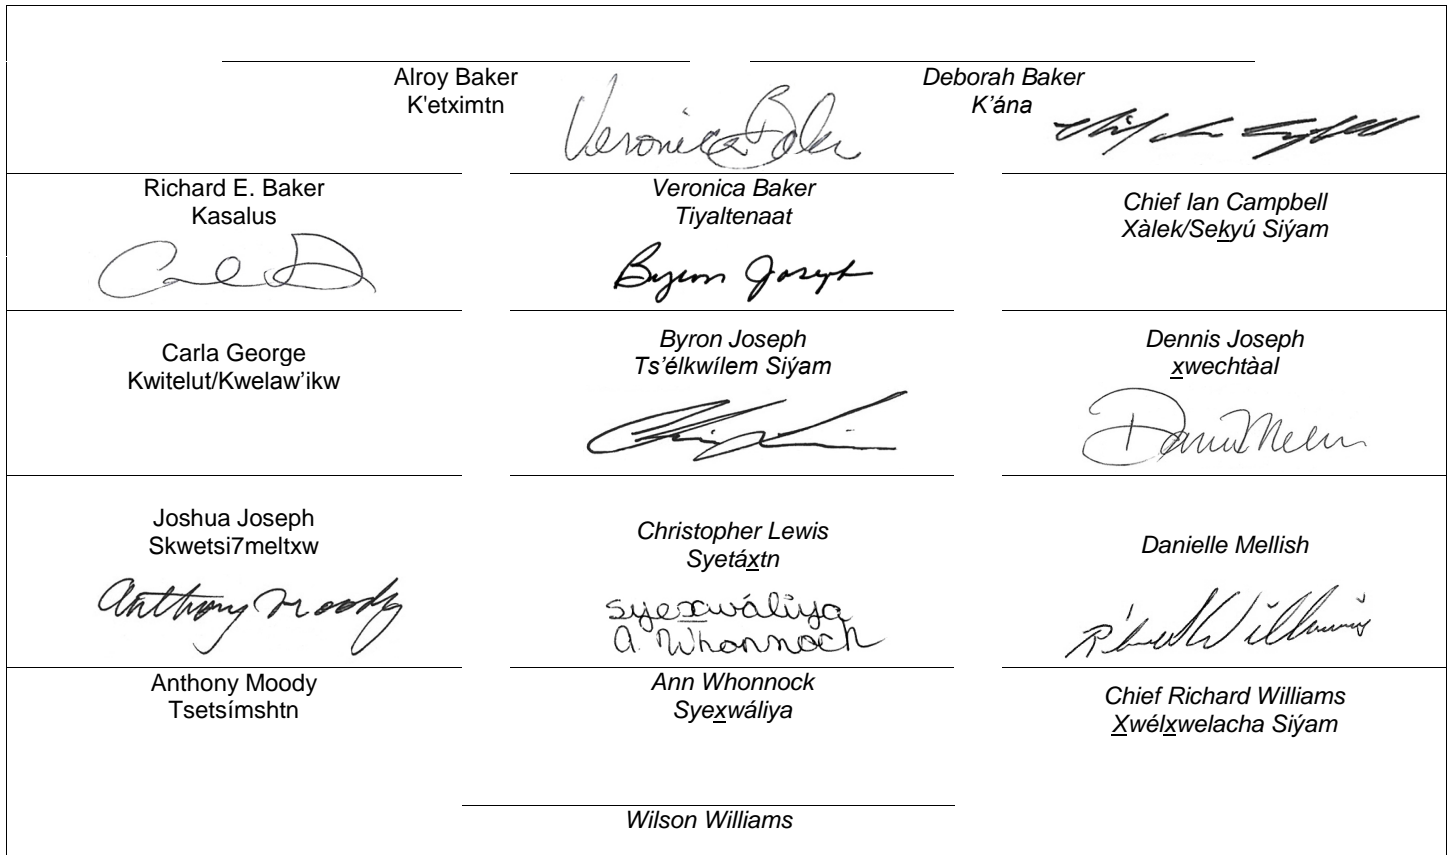 Alroy Baker
K'etximtn
Deborah Baker
K’ána
Veronica Baker
Richard E. Baker
Kasalus
Veronica Baker
Tiyaltenaat
Chief Ian Campbell
Xàlek/Sekyú Siýam
Byron Joseph
Carla George
Kwitelut/Kwelaw’ikw
Byron Joseph
Ts’élkwílem Siýam
Dennis Joseph
xwechtàal
Joshua Joseph
Skwetsi7meltxw
Christopher Lewis
Syetáxtn
Danielle Mellish
Anthony Moody
syexwáliya
A. Whonnock
Anthony Moody
Tsetsímshtn
Ann Whonnock
Syexwáliya
Chief Richard Williams
Xwélxwelacha Siýam
Wilson Williams